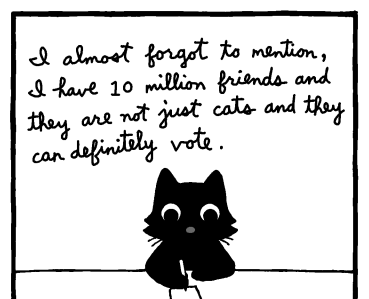 I almost forgot to mention,
I have 10 million friends and
they are not just cats and they
can definitely vote.